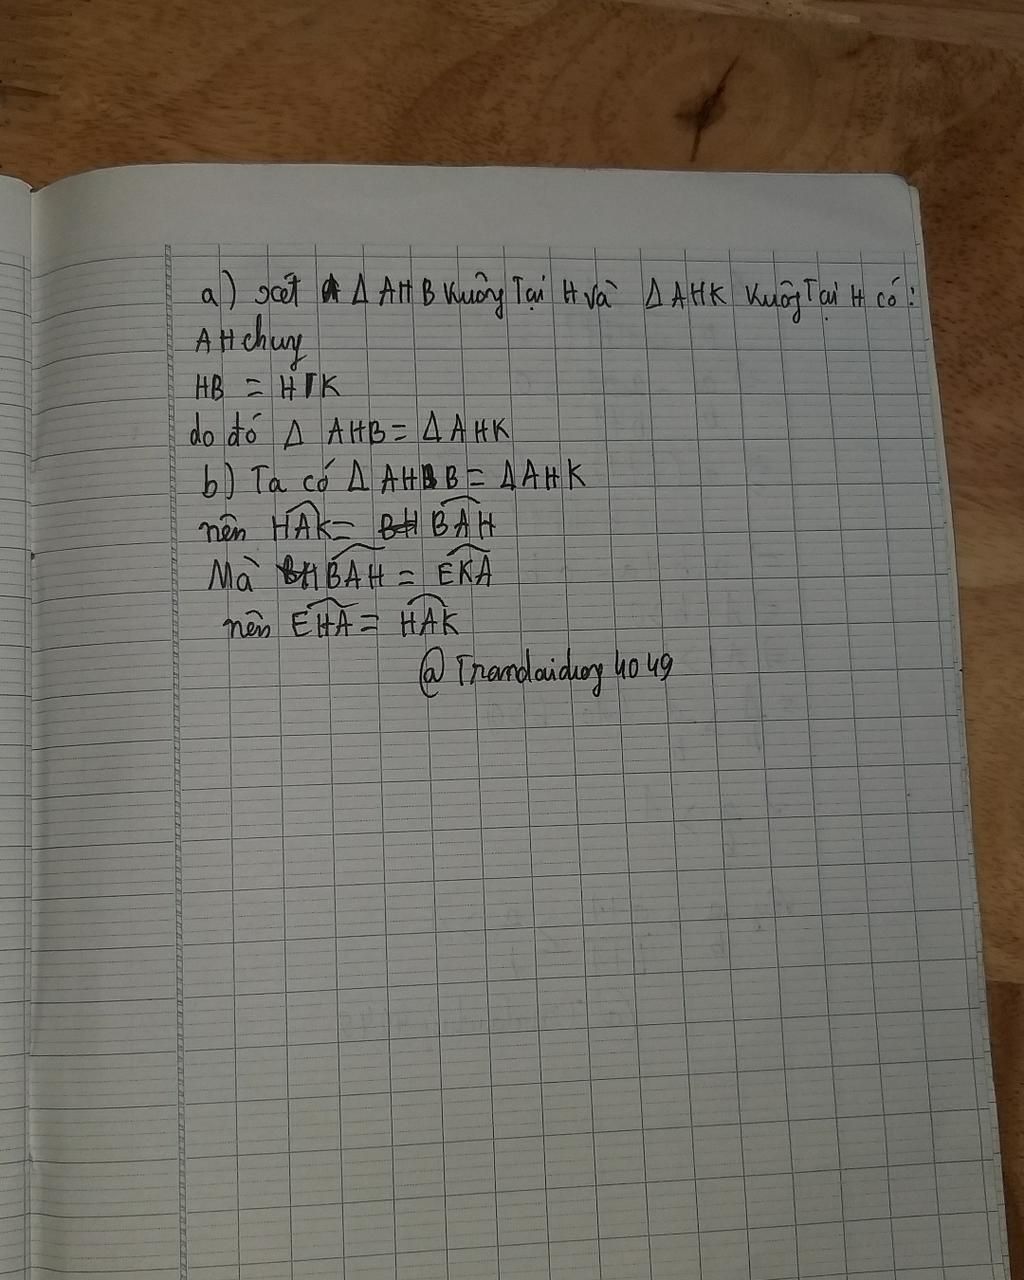 a) xét Δ AHB vuông Tại H và Δ AHK vuông Tại H có:
AH chung
HB = HK
do đó Δ AHB = Δ AHK
b) Ta có Δ AHB = Δ AHK
nên HAK = BAH
Mà BAH = EKA
nên EHA = HAK
@Trandaiduong4049